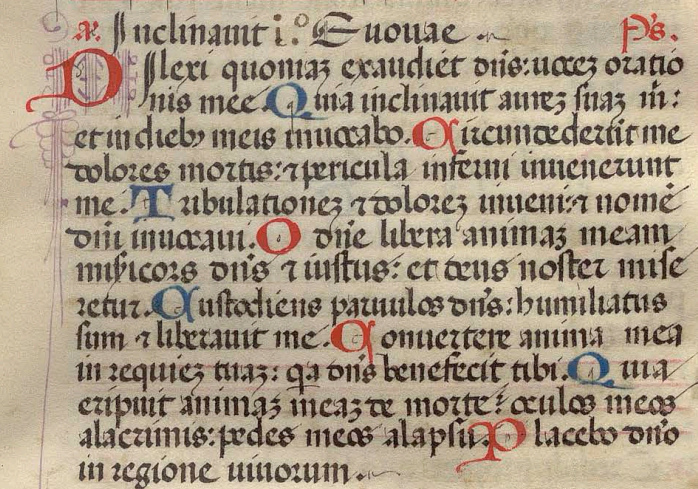 a. Inclinauit i.° Euouae. Ps.
Dilexi quoniaz exaudiet dñs: uocez oratio
nis mee. Quia inclinauit aurez suaz m̃:
et in dieb9 meis inuocabo. Circundederũt me
dolores mortis: ⁊ pericula inferni inuenerunt
me. Tribulationez ⁊ dolorez inueni: ⁊ nomẽ
dñi inuocaui. O dñe libera animaz meam
mi͂icors dñs ⁊ iustus: et deus noster mise
retur. Custodiens paruulos dñs: humiliatus
sum ⁊ liberauit me. Conuertere anima mea
in requiez tuaz: qa dñs benefecit tibi. Quia
eripuit animaz meaz de morte: oculos meos
alacrimis: pedes meos alapsu. Placebo dño
in regione uiuorum.